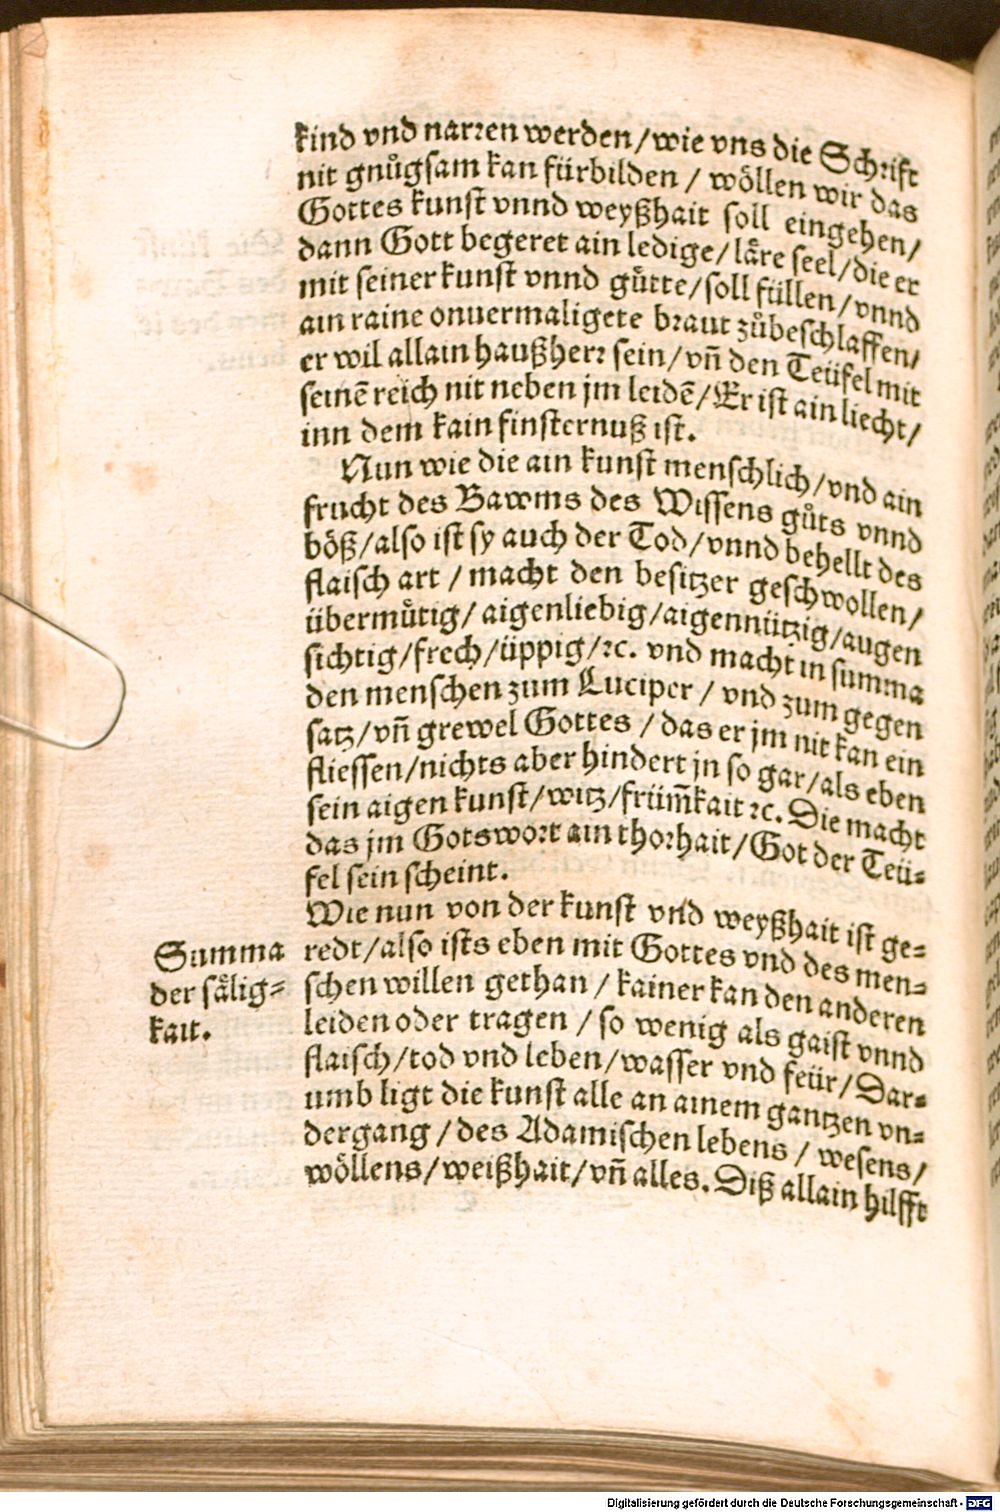 kind vnd narren werden/wie vns die Schrift
nit gnůgsam kan fürbilden / wöllen wir das
Gottes kunst vnnd weyßhait soll eingehen/
dann Gott begeret ain ledige/läre seel/die er
mit seiner kunst vnnd gůtte/soll füllen/vnnd
ain raine onuermaligete braut zůbeschlaffen/
er wil allain haußherr sein/vñ den Teüfel mit
seinē reich nit neben jm leidē/Er ist ain liecht/
inn dem kain finsternuß ist.
Nun wie die ain kunst menschlich/vnd ain
frucht des Bawms des Wissens gůts vnnd
böß/also ist sy auch der Tod/vnnd behellt des
flaisch art / macht den besitzer geschwollen/
übermůtig/ aigenliebig/aigennützig/augen
sichtig/frech/üppig/ꝛc. vnd macht in summa
den menschen zum Luciper / vnd zum gegen
satz/vñ grewel Gottes / das er jm nit kan ein
fliessen/nichts aber hindert jn so gar/als eben
sein aigen kunst/witz/früm̃kait ꝛc. Die macht
das jm Gotswort ain thorhait/Got der Teü-
fel sein scheint.
Wie nun von der kunst vnd weyßhait ist ge-
Summa
der sälig-
kait.
redt/also ists eben mit Gottes vnd des men-
schen willen gethan / kainer kan den anderen
leiden oder tragen / so wenig als gaist vnnd
flaisch/tod vnd leben/wasser vnd feür/Dar-
umb ligt die kunst alle an ainem gantzen vn-
dergang/des Adamischen lebens / wesens/
wöllens/weißhait/vñ alles. Diß allain hilfft
Digitalisierung gefördert durch die Deutsche Forschungsgemeinschaft - DFG